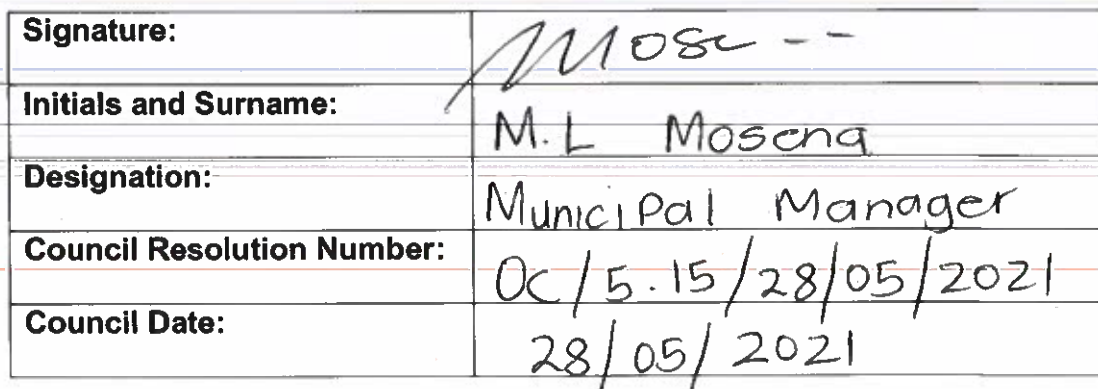 Signature:
Initials and Surname: M.L Mosena
Designation: Municipal Manager
Council Resolution Number: OC/5.15/28/05/2021
Council Date: 28/05/2021